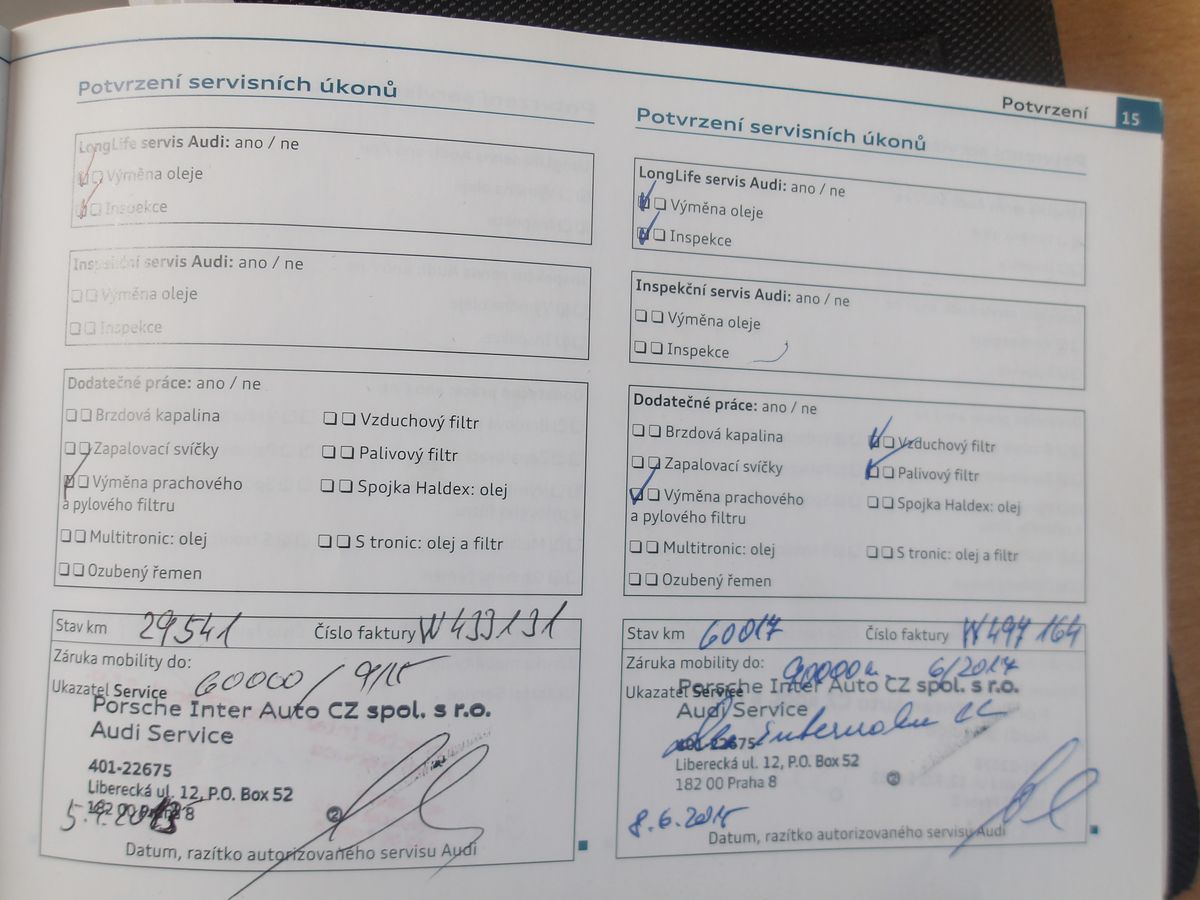 Potvrzení 15
Potvrzení servisních úkonů
LongLife servis Audi: ano / ne
Výměna oleje
Inspekce
Inspekční servis Audi: ano / ne
Výměna oleje
Inspekce
Dodatečné práce: ano / ne
Brzdová kapalina
Vzduchový filtr
Zapalovací svíčky
Palivový filtr
Výměna prachového
a pylového filtru
Spojka Haldex: olej
Multitronic: olej
S tronic: olej a filtr
Ozubený řemen
Stav km 29541 Číslo faktury W433131
Záruka mobility do: 60000 / 9/15
Ukazatel Service
Porsche Inter Auto CZ spol. s r.o.
Audi Service
401-22675
Liberecká ul. 12, P.O. Box 52
182 00 Praha 8
Datum, razítko autorizovaného servisu Audi
Potvrzení servisních úkonů
LongLife servis Audi: ano / ne
Výměna oleje
Inspekce
Inspekční servis Audi: ano / ne
Výměna oleje
Inspekce
Dodatečné práce: ano / ne
Brzdová kapalina
Vzduchový filtr
Zapalovací svíčky
Palivový filtr
Výměna prachového
a pylového filtru
Spojka Haldex: olej
Multitronic: olej
S tronic: olej a filtr
Ozubený řemen
Stav km 60017 Číslo faktury W497164
Záruka mobility do: 6/2017
Ukazatel Service
Porsche Inter Auto CZ spol. s r.o.
Audi Service
401-22675
Liberecká ul. 12, P.O. Box 52
182 00 Praha 8
8.6.2015
Datum, razítko autorizovaného servisu Audi